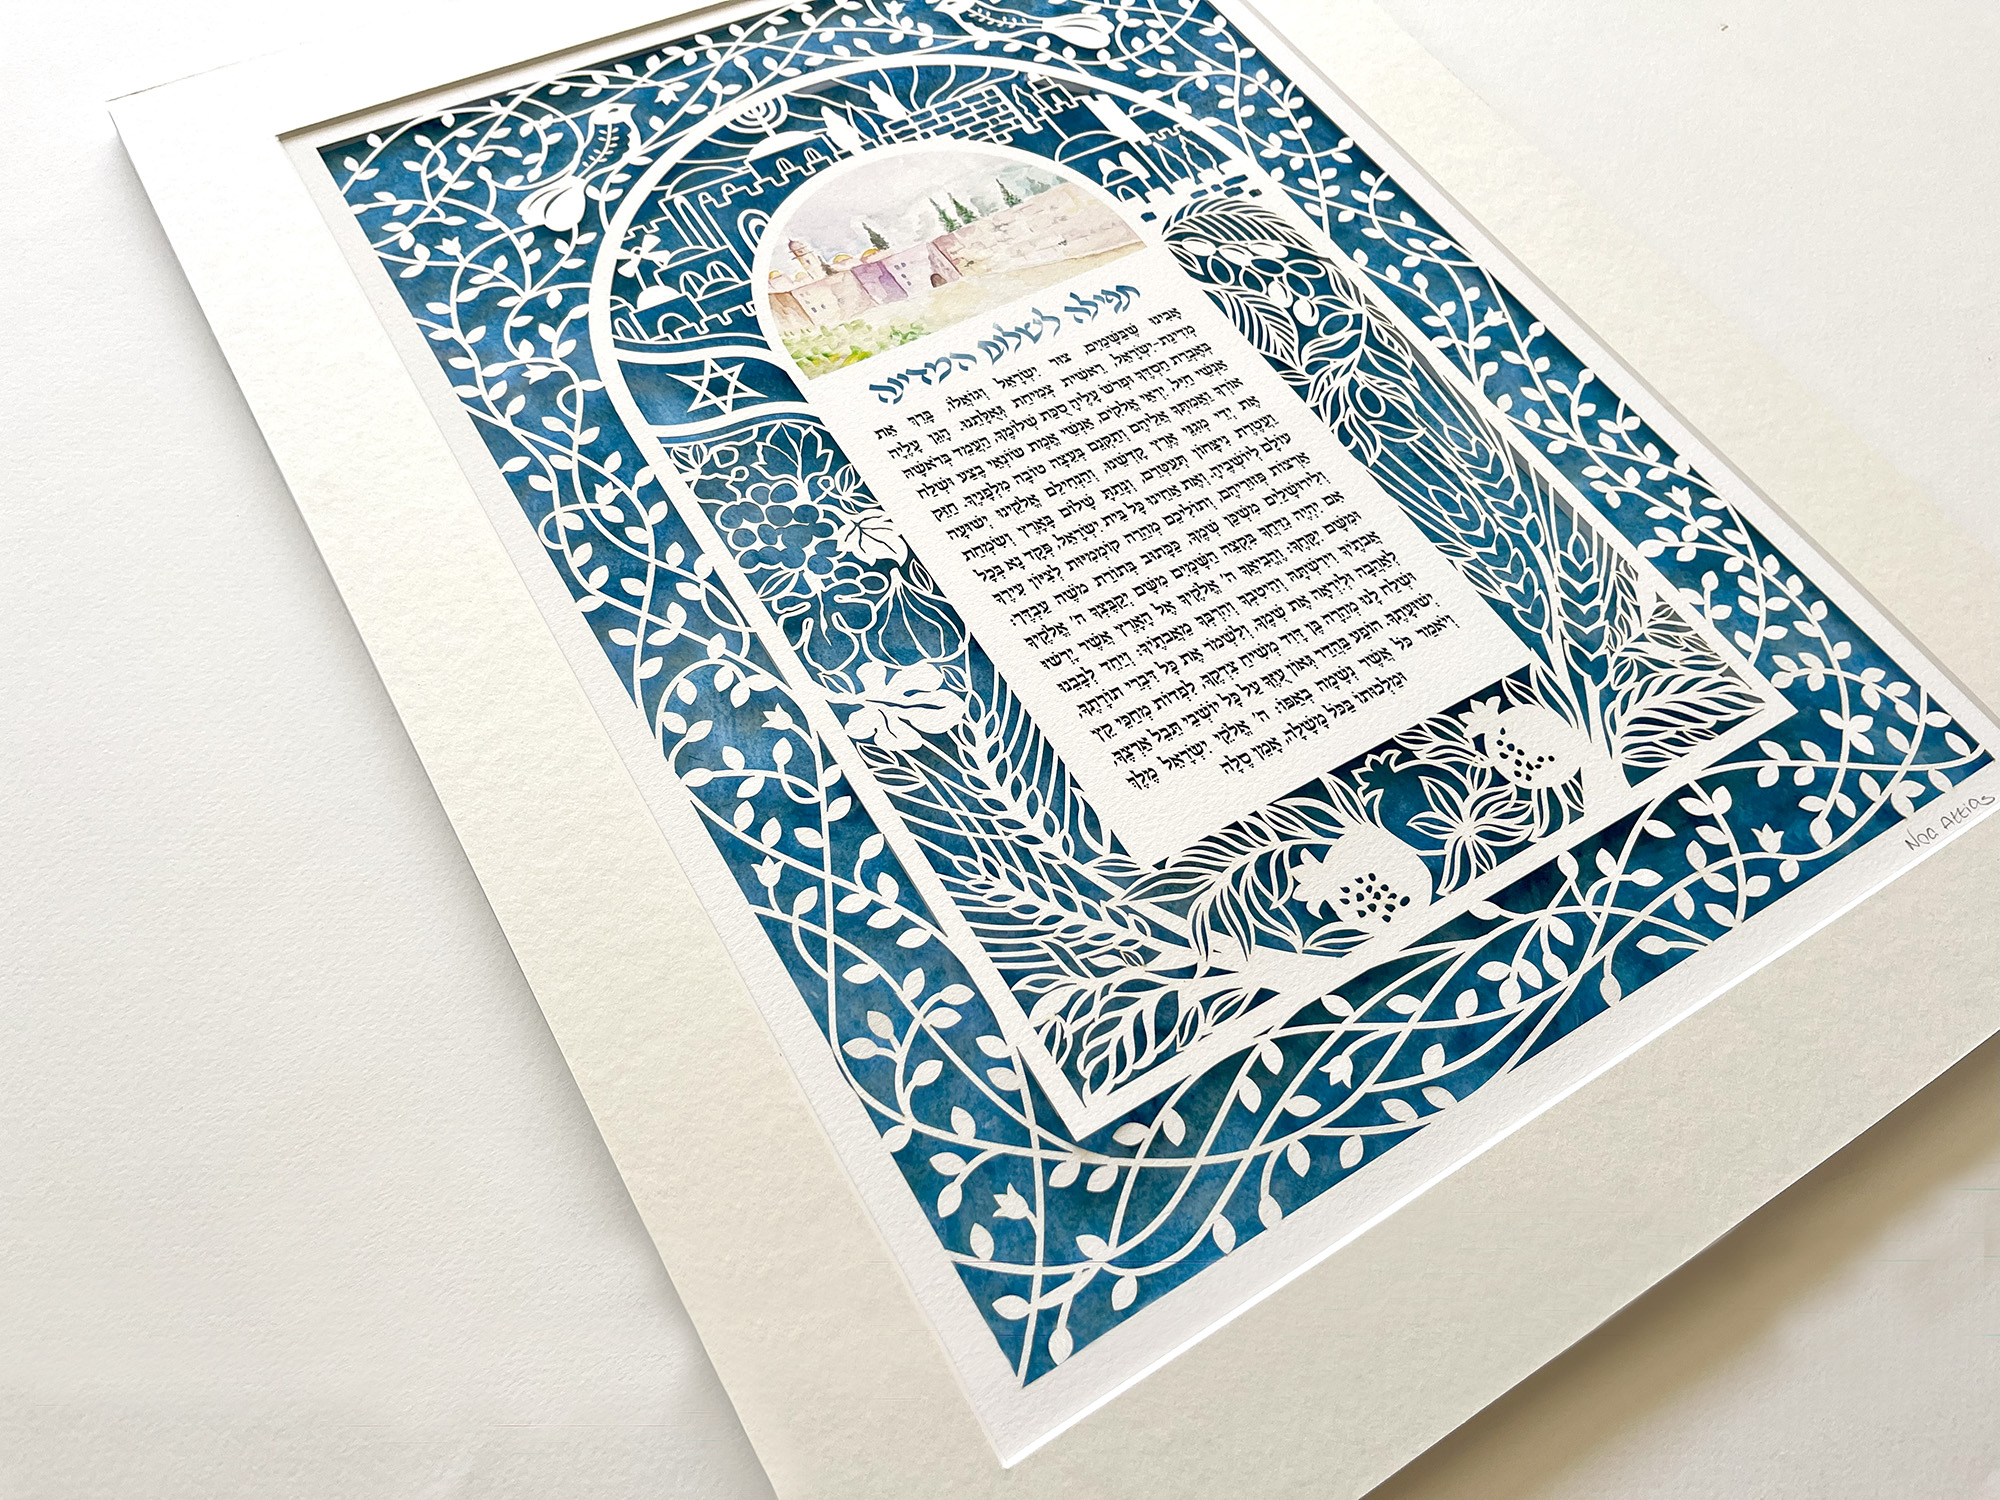 תפילה לשלום המדינה
אָבִינוּ שֶׁבַּשָּׁמַיִם, צוּר יִשְׂרָאֵל וְגוֹאֲלוֹ, בָּרֵךְ אֶת
מְדִינַת-יִשְׂרָאֵל, רֵאשִׁית צְמִיחַת גְּאֻלָּתֵנוּ. הָגֵן עָלֶיהָ
בְּאֶבְרַת חַסְדֶּךָ וּפְרֹשׂ עָלֶיהָ סֻכַּת שְׁלוֹמֶךָ. הַעֲמֵד בְּרֹאשָׁהּ
אַנְשֵׁי חַיִל, יִרְאֵי אֱלֹקִים, אַנְשֵׁי אֱמֶת שׂוֹנְאֵי בָצַע וּשְׁלַח
אוֹרְךָ וַאֲמִתְּךָ אֲלֵיהֶם וְתַקְּנֵם בְּעֵצָה טוֹבָה מִלְּפָנֶיךָ. חַזֵּק
אֶת יְדֵי מְגִנֵּי אֶרֶץ קָדְשֵׁנוּ, וְהַנְחִילֵם אֱלֹקֵינוּ יְשׁוּעָה
וַעֲטֶרֶת נִיצָּחוֹן תְּעַטְּרֵם, וְנָתַתָּ שָׁלוֹם בָּאָרֶץ וְשִׂמְחַת
עוֹלָם לְיוֹשְׁבֶיהָ. וְאֶת אַחֵינוּ כָּל בֵּית יִשְׂרָאֵל, פְּקָד נָא בְּכָל
אַרְצוֹת פְּזוּרֵיהֶם, וְתוֹלִיכֵם מְהֵרָה קוֹמְמִיּוּת לְצִיּוֹן עִירֶךָ
וְלִירוּשָׁלַיִם מִשְׁכַּן שְׁמֶךָ, כַּכָּתוּב בְּתוֹרַת מֹשֶׁה עַבְדֶּךָ:
אִם יִהְיֶה נִדַּחֲךָ בִּקְצֵה הַשָּׁמַיִם מִשָּׁם יְקַבֶּצְךָ ה' אֱלֹקֶיךָ
וּמִשָּׁם יִקָּחֶךָ: וֶהֱבִיאֲךָ ה' אֱלֹקֶיךָ אֶל הָאָרֶץ אֲשֶׁר יָרְשׁוּ
אֲבֹתֶיךָ וִירִשְׁתָּהּ וְהֵיטִבְךָ וְהִרְבְּךָ מֵאֲבֹתֶיךָ: וְיַחֵד לְבָבֵנוּ
לְאַהֲבָה וּלְיִרְאָה אֶת שְׁמֶךָ, וְלִשְׁמֹר אֶת כָּל דִּבְרֵי תוֹרָתֶךָ,
וּשְׁלַח לָנוּ מְהֵרָה בֶּן דָּוִד מְשִׁיחַ צִדְקֶךָ, לִפְדּוֹת מְחַכֵּי קֵץ
יְשׁוּעָתֶךָ. הוֹפַע בַּהֲדַר גְּאוֹן עֻזֶּךָ עַל כָּל יוֹשְׁבֵי תֵבֵל אַרְצֶךָ,
וְיֹאמַר כֹּל אֲשֶׁר נְשָׁמָה בְּאַפּוֹ: ה' אֱלֹקֵי יִשְׂרָאֵל מֶלֶךְ
וּמַלְכוּתוֹ בַּכֹּל מָשָׁלָה, אָמֵן סֶלָה
Noa Attias